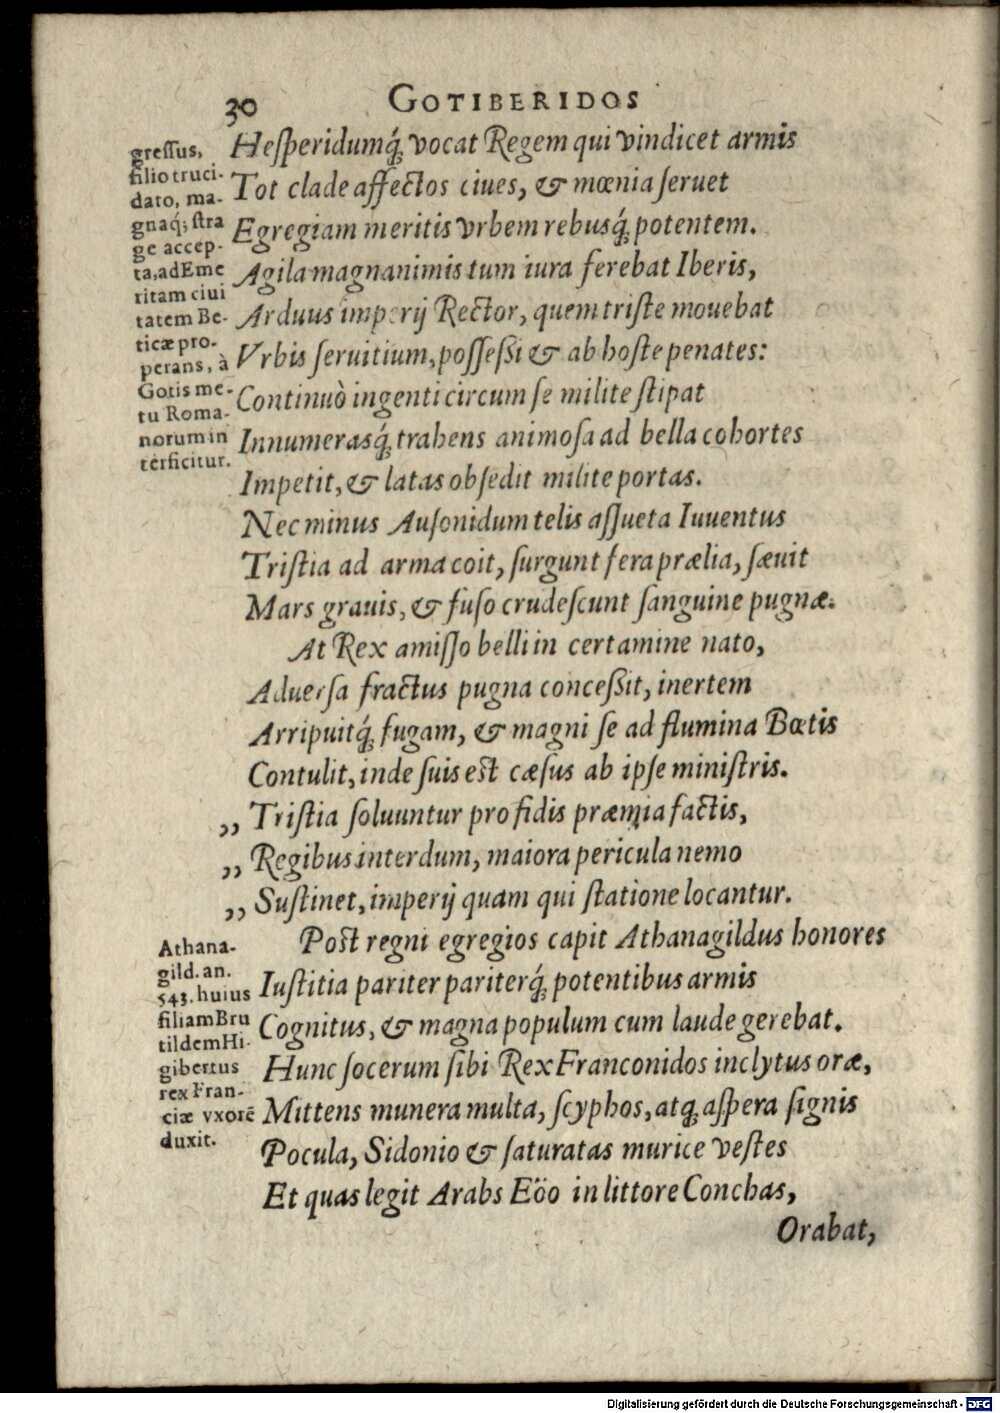 30 GOTIBERIDOS
gressus,
filio truci-
dato, ma-
gnaq́; stra
ge accep-
ta, ad Eme
ritam ciui
tatem Be-
ticæ pro-
perans, à
Gotis me-
tu Roma-
norum in
terficitur.
Hesperidumq́; vocat Regem qui vindicet armis
Tot clade affectos ciues, & mœnia seruet
Egregiam meritis vrbem rebusq́; potentem.
Agila magnanimis tum iura ferebat Iberis,
Arduus imperij Rector, quem triste mouebat
Vrbis seruitium, possessi & ab hoste penates:
Continuò ingenti circum se milite stipat
Innumerasq́; trahens animosa ad bella cohortes
Impetit, & latas obsedit milite portas.
Nec minus Ausonidum telis assueta Iuuentus
Tristia ad arma coit, surgunt fera prælia, sæuit
Mars grauis, & fuso crudescunt sanguine pugnæ.
At Rex amisso belli in certamine nato,
Aduersa fractus pugna concessit, inertem
Arripuitq́; fugam, & magni se ad flumina Bœtis
Contulit, inde suis est cæsus ab ipse ministris.
,, Tristia soluuntur pro fidis præmia factis,
,, Regibus interdum, maiora pericula nemo
,, Sustinet, imperij quam qui statione locantur.
Athana-
gild. an.
543. huius
filiam Bru
tildem Hi-
gibertus
rex Fran-
ciæ vxorē
duxit.
Post regni egregios capit Athanagildus honores
Iustitia pariter pariterq́; potentibus armis
Cognitus, & magna populum cum laude gerebat.
Hunc socerum sibi Rex Franconidos inclytus oræ,
Mittens munera multa, scyphos, atq; aspera signis
Pocula, Sidonio & saturatas murice vestes
Et quas legit Arabs Eöo in littore Conchas,
Orabat,
Digitalisierung gefördert durch die Deutsche Forschungsgemeinschaft - DFG